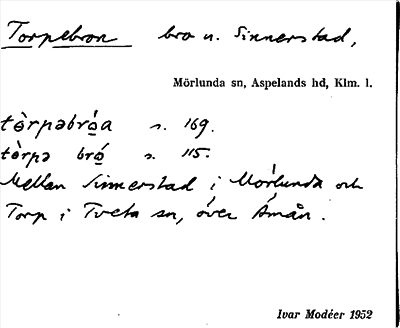 Torpebron bro n. Sinnerstad,
Mörlunda sn, Aspelands hd, Klm. l.
tòrpəbróa s. 169.
tòrpə bró s. 115.
Mellan Sinnerstad i Mörlunda och
Torp i Tveta sn, över Åmån.
Ivar Modéer 1952